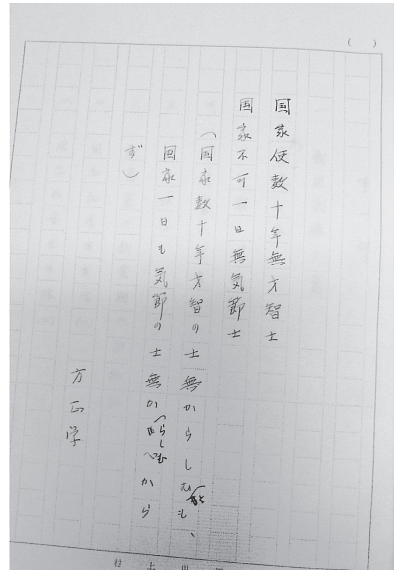 （　）
国家使数十年無才智士
国家不可一日無気節士
（国家数十年才智の士無からしむも、
国家一日も気節の士無か
から
ず）
方正学